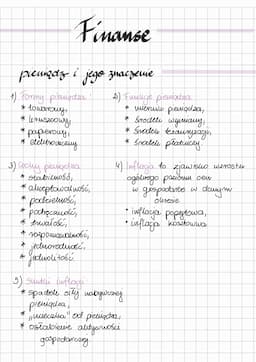 Finanse
pieniądz i jego znaczenie
1) Formy pieniądza
* towarowy,
* kruszcowy,
* papierowy,
* elektroniczny
2) Funkcje pieniądza
* miernik pieniądza,
* środek wymiany,
* środek tezauryzacji,
* środek płatniczy
3) Cechy pieniądza
* stabilność,
* akceptowalność,
* podzielność,
* poręczność,
* trwałość,
* rozpoznawalność,
* jednorodność,
* jednolitość
4) Inflacja to zjawisko wzrostu
ogólnego poziomu cen
w gospodarce w danym
okresie
• inflacja popytowa,
• inflacja kosztowa
5) Skutki inflacji
* spadek siły nabywczej
pieniądza,
* „ucieczka" od pieniądza,
* osłabienie aktywności
gospodarczej